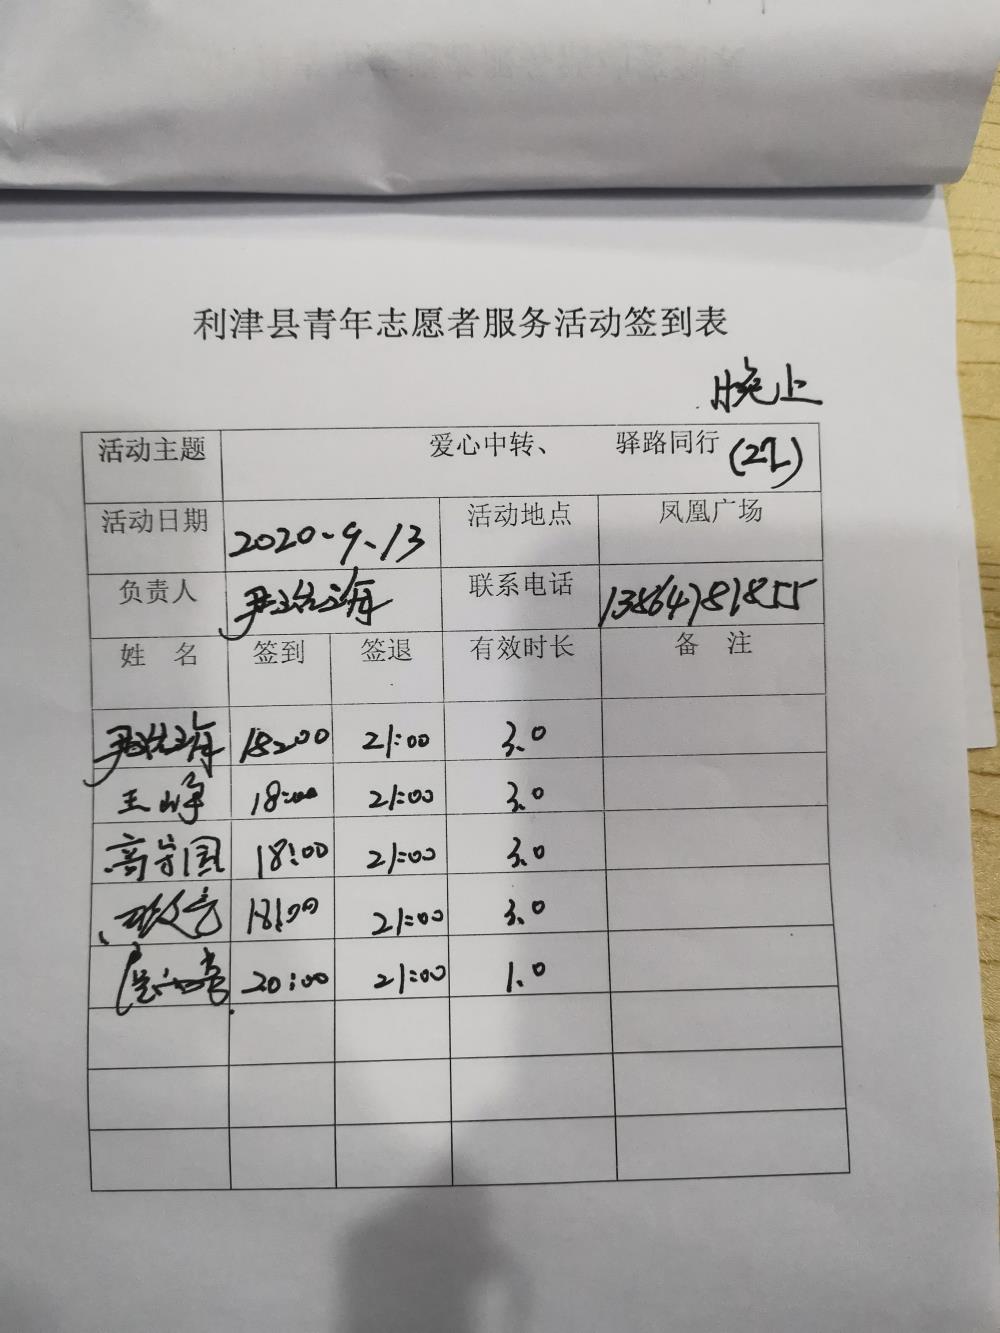 利津县青年志愿者服务活动签到表
晚上
活动主题 爱心中转、 驿路同行
活动日期 2020.9.13 活动地点 凤凰广场
负责人 联系电话 13864781855
姓 名 签到 签退 有效时长 备 注
18:00 21:00 3.0
王峥 18:00 21:00 3.0
高宗国 18:00 21:00 3.0
18:00 21:00 3.0
20:00 21:00 1.0